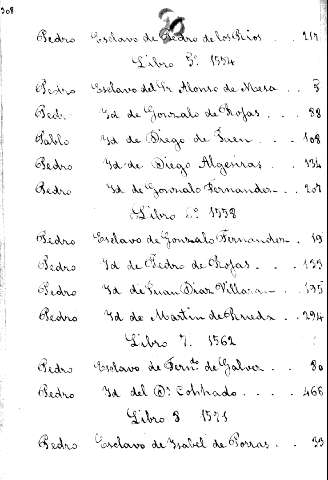 908
Pedro Esclavo de Pedro de los Rios . . 217
Libro 5º 1554
Pedro Esclavo del Sr Alonso de Mesa . . 5
Ped. Id de Gonzalo de Rojas . . . 88
Pablo Id de Diego de Jaen . . . 108
Pedro Id de Diego Algeciras . . 134
Pedro Id de Gonzalo Fernandez . . 207
Libro 6º 1558
Pedro Esclavo de Gonzalo Fernandez . 19
Pedro Id de Pedro de Rojas . . . 135
Pedro Id de Juan Diaz . . 175
Pedro Id de Martin de Rueda . . 294
Libro 7. 1562
Pedro Esclavo de Ferndo de Galvez . . 80
Pedro Id del Dr . . . . 466
Libro 8 1571
Pedro Esclavo de Isabel de Porras . . 39